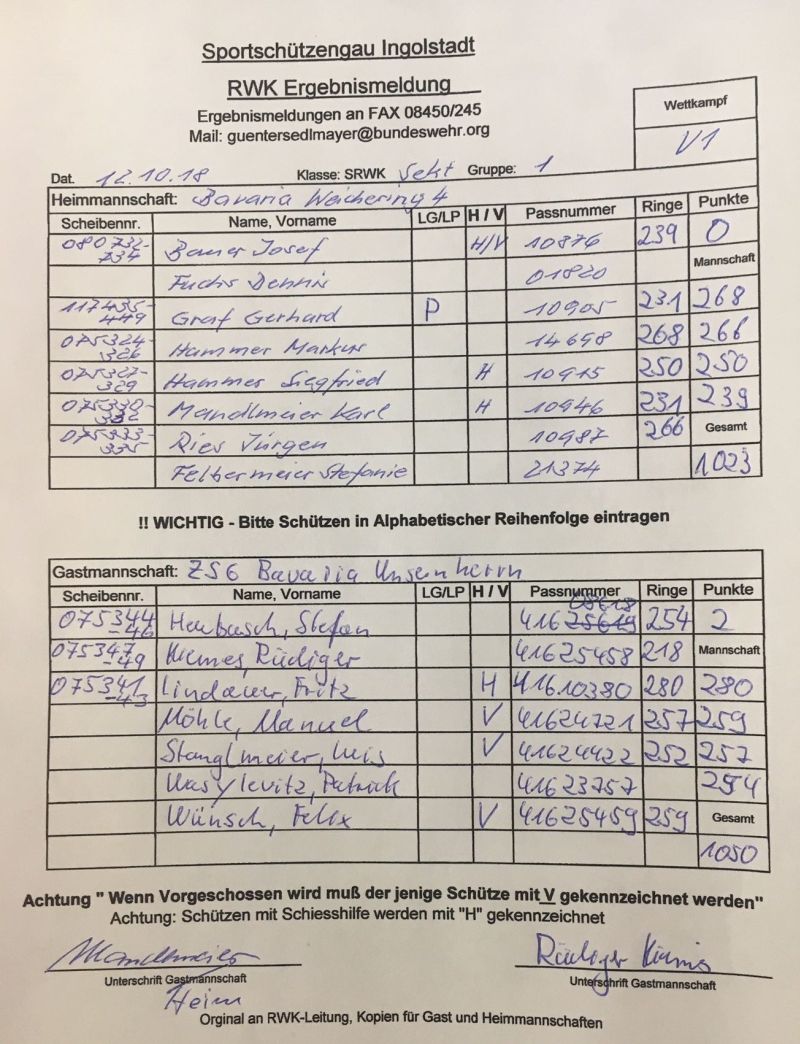 Sportschützengau Ingolstadt
RWK Ergebnismeldung
Ergebnismeldungen an FAX 08450/245
Mail: guentersedlmayer@bundeswehr.org
Wettkampf
V1
Dat. 12.10.18 Klasse: SRWK Sekt Gruppe: 1
Heimmannschaft: Bavaria Weichering 4
Scheibennr. Name, Vorname LG/LP H / V Passnummer Ringe Punkte
080732-734 Bauer Josef H/V 10876 239 0
Fuchs Dennis 01820 Mannschaft
117435-449 Graf Gerhard P 10905 231 268
075324-326 Hammer Markus 14698 268 266
075327-329 Hammer Siegfried H 10915 250 250
075330-332 Mandlmeier Karl H 10946 231 239
075333-335 Ries Jürgen 10987 266 Gesamt
Felbermeier Stefanie 21374 1023
!! WICHTIG - Bitte Schützen in Alphabetischer Reihenfolge eintragen
Gastmannschaft: ZSG Bavaria Unsernherrn
Scheibennr. Name, Vorname LG/LP H / V Passnummer Ringe Punkte
075344-46 Haubasch, Stefan 416 254 2
075347-49 Kiemes, Rüdiger 41625458 218 Mannschaft
075341-43 Lindauer, Fritz H 41610380 280 280
Möhle, Manuel V 41624721 257 259
Stanglmeier, Luis V 41624422 252 257
Wasylevitz, Patrick 41623757 254
Wünsch, Felix V 41625459 259 Gesamt
1050
Achtung " Wenn Vorgeschossen wird muß der jenige Schütze mit V gekennzeichnet werden"
Achtung: Schützen mit Schiesshilfe werden mit "H" gekennzeichnet
Mandlmeier Rüdiger
Unterschrift Gastmannschaft Unterschrift Gastmannschaft
Heim
Orginal an RWK-Leitung, Kopien für Gast und Heimmannschaften